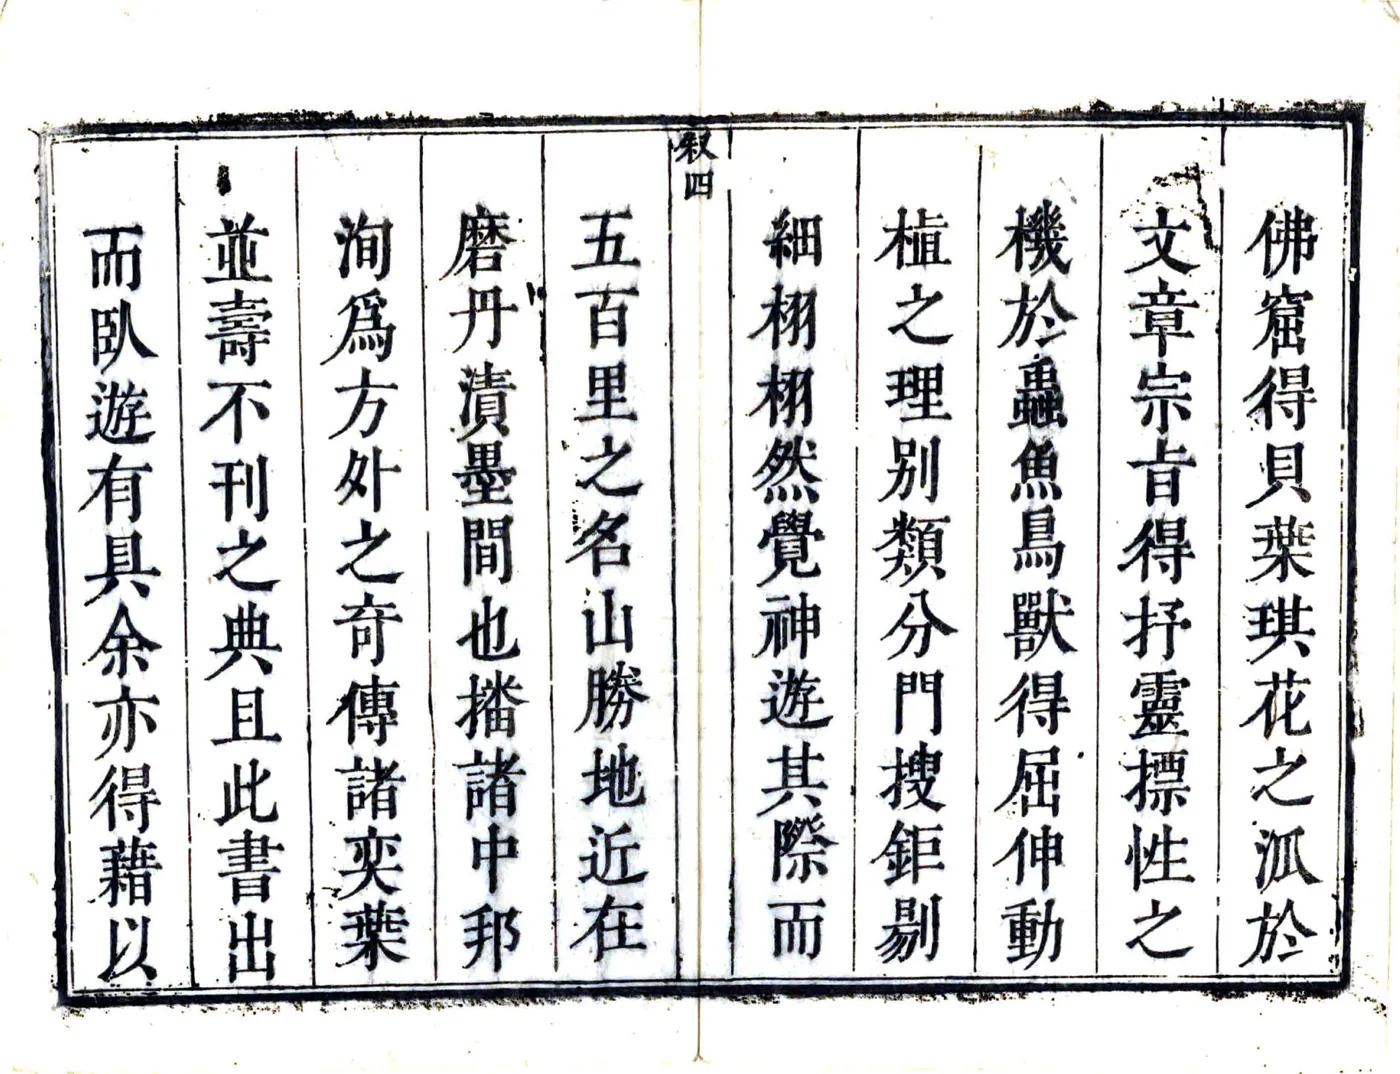 佛窟得貝葉琪花之泒於
文章宗㫖得抒靈摽性之
機於蟲魚鳥獸得屈伸動
植之理别類分門搜鉅剔
細栩栩然覺神遊其際而
叙四
五百里之名山勝地近在
磨丹漬墨間也播諸中邦
洵爲方外之奇傳諸奕葉
並壽不刊之典且此書出
而臥遊有具余亦得藉以